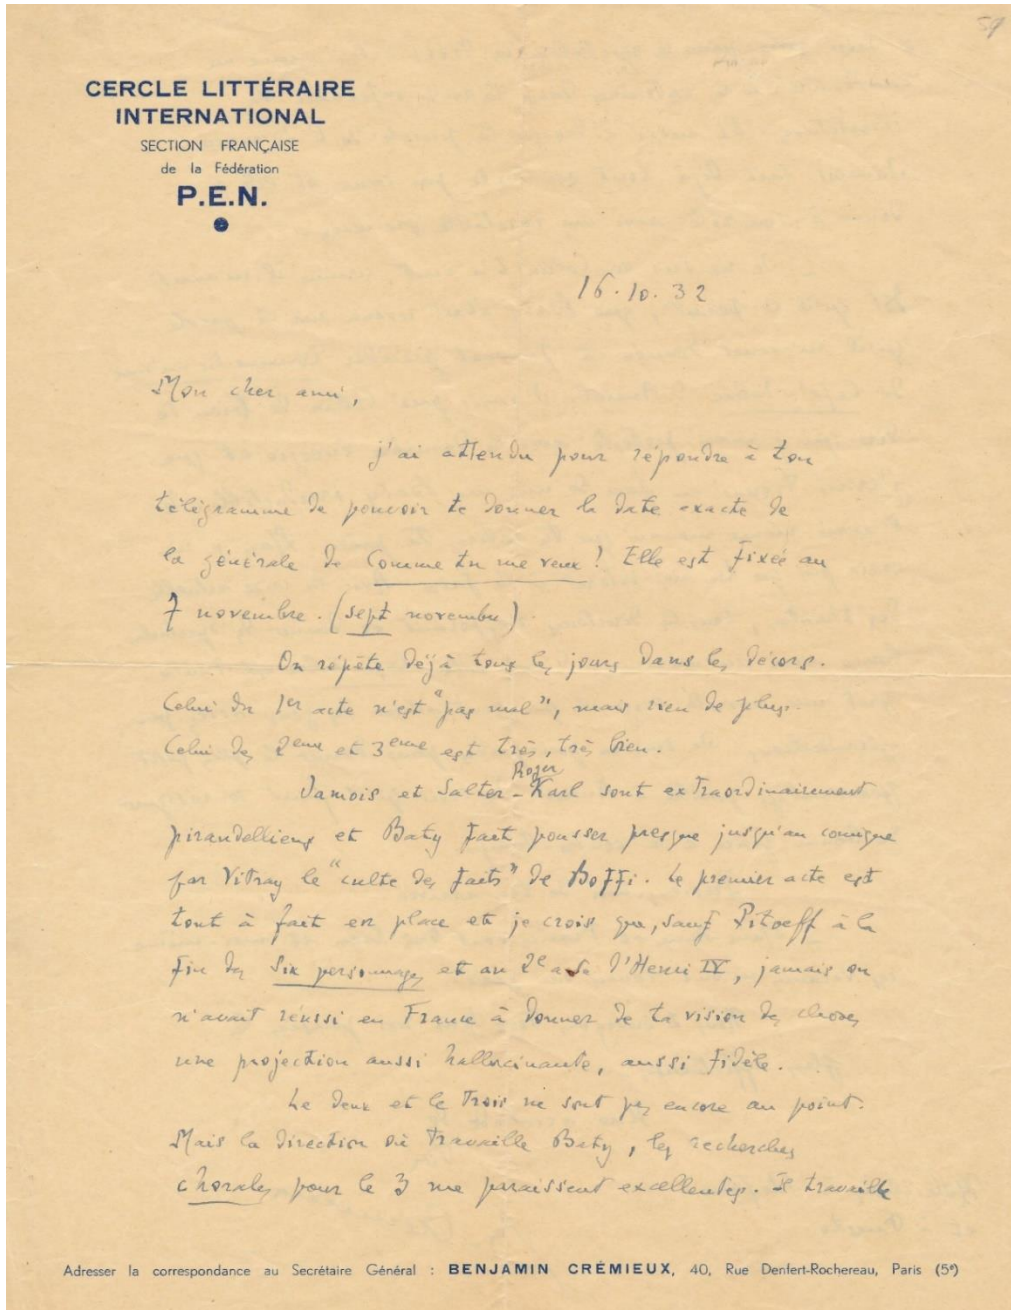 59
CERCLE LITTÉRAIRE
INTERNATIONAL
SECTION FRANÇAISE
de la Fédération
P.E.N.
16.10.32
Mon cher ami,
j'ai attendu pour répondre à ton
télégramme de pouvoir te donner la date exacte de
la générale de Comme tu me veux ! Elle est fixée au
7 novembre. (sept novembre).
On répète déjà tous les jours dans les décors.
Celui du 1er acte n'est "pas mal", mais rien de plus.
Celui des 2eme et 3eme est très, très bien.
Roger
Jamois et Salter-Karl sont extraordinairement
pirandelliens et Baty fait pousser presque jusqu'au comique
par Vitray le "culte des faits" de Boffi. Le premier acte est
tout à fait en place et je crois que, sauf Pitoeff à la
fin des Six personnages et au 2e acte d'Henri IV, jamais on
n'avait réussi en France à donner de ta vision des choses
une projection aussi hallucinante, aussi fidèle.
Le deux et le trois ne sont pas encore au point.
Mais la direction où travaille Baty, les recherches
chorales pour le 3 me paraissent excellentes. Il travaille
Adresser la correspondance au Secrétaire Général : BENJAMIN CRÉMIEUX, 40, Rue Denfert-Rochereau, Paris (5e)